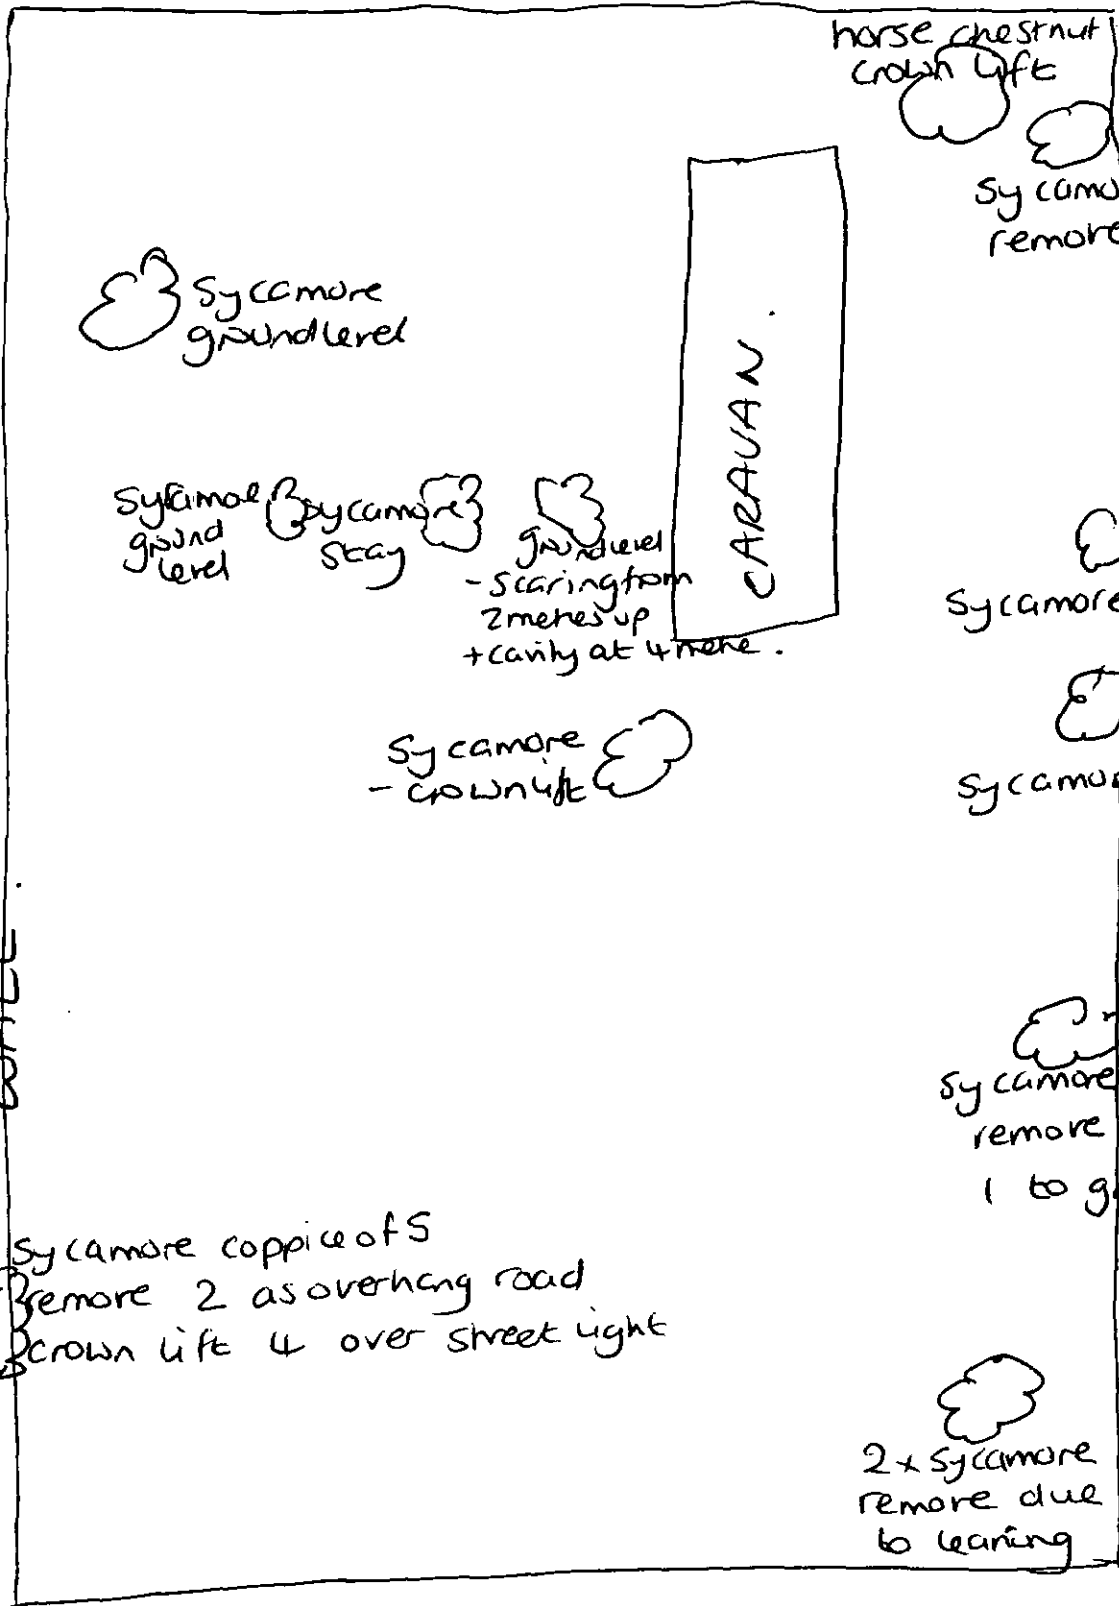 horse chestnut
crown lift
Sycamo
remove
Sycamore
ground level
CARAVAN.
Sycamore
ground
level
Sycamore
stay
ground level
- scaring from
2 metres up
+ cavity at 4 metre.
Sycamore
Sycamore
- crown lift
Sycamor
Sycamore
remove
1 to g
Sycamore coppice of 5
remove 2 as overhang road
crown lift 4 over street light
2 x Sycamore
remove due
to leaning